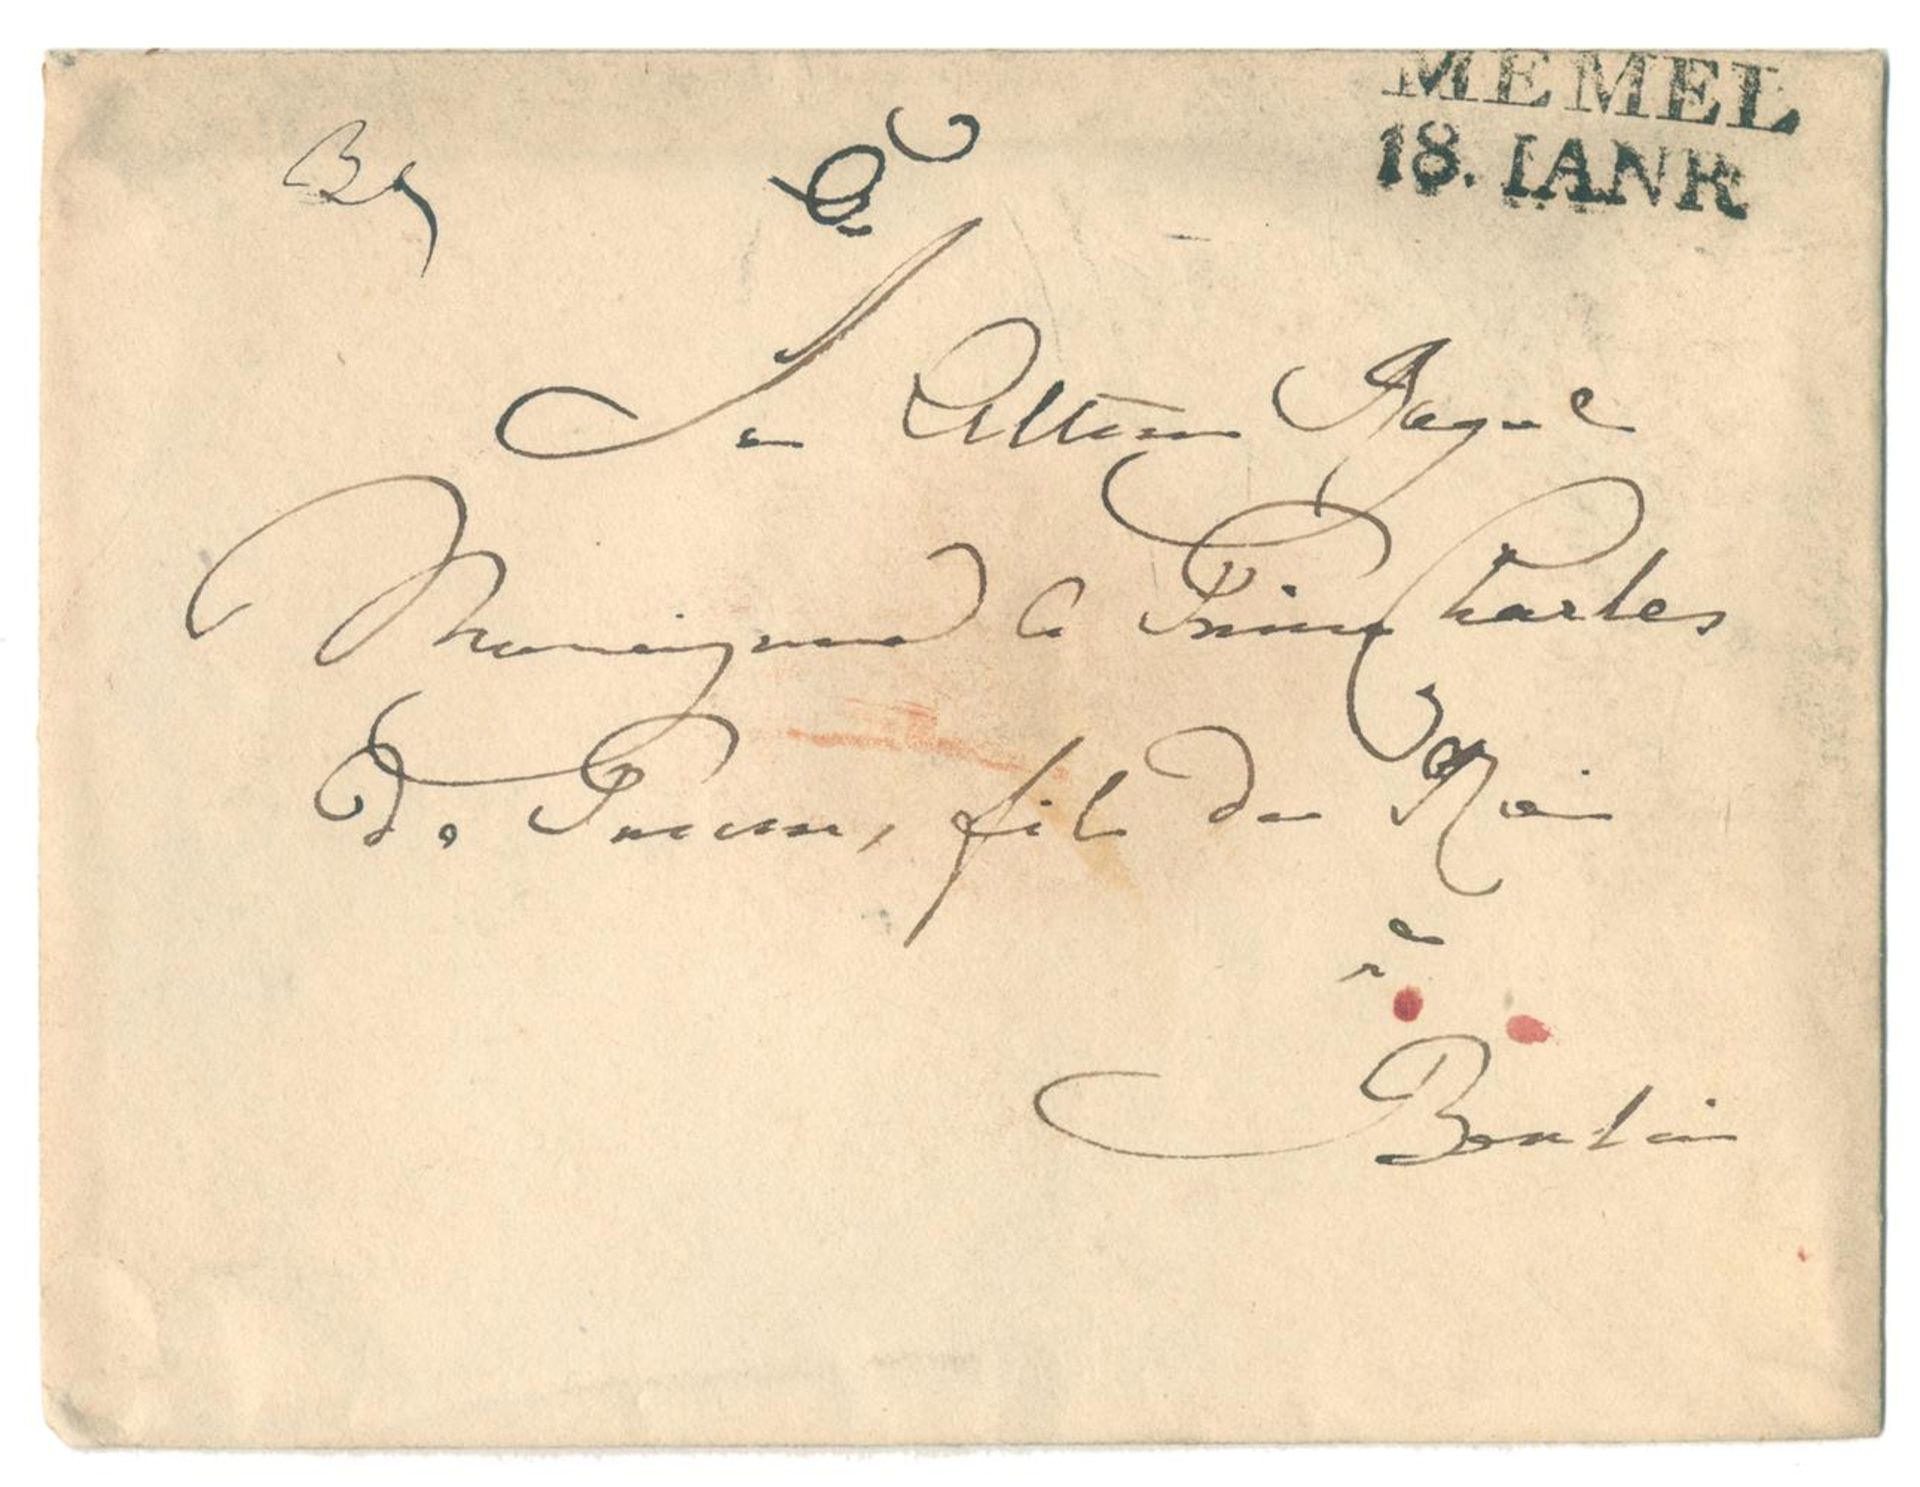 MEMEL
18. IANR
Son Altesse Royale
Monseigneur le Prince Charles
de Prusse, fils du Roi
à
Berlin